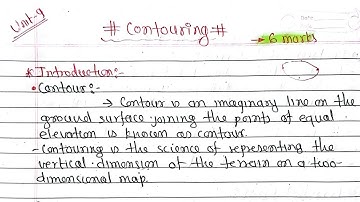 Unit-9
# Contouring #
→ 6 marks
* Introduction:-
• Contour:-
→ Contour is an imaginary line on the
ground surface joining the points of equal
elevation is known as contour.
- Contouring is the science of representing the
vertical dimension of the terrain on a two-
dimensional map.